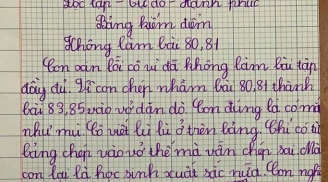 Độc lập - Tự do - Hạnh phúc
Bảng kiểm điểm
Không làm bài 80,81
Con xin lỗi cô vì đã không làm bài tập
đầy đủ. Vì con chép nhầm bài 80,81 thành
bài 83,85 vào vở dặn dò. Con đúng là có mắt
như mù. Cô viết lù lù ở trên bảng. Chỉ có từ
bảng chép vào vở thế mà vẫn chép sai. Mà
con lại là học sinh xuất sắc nữa. Con nghĩ